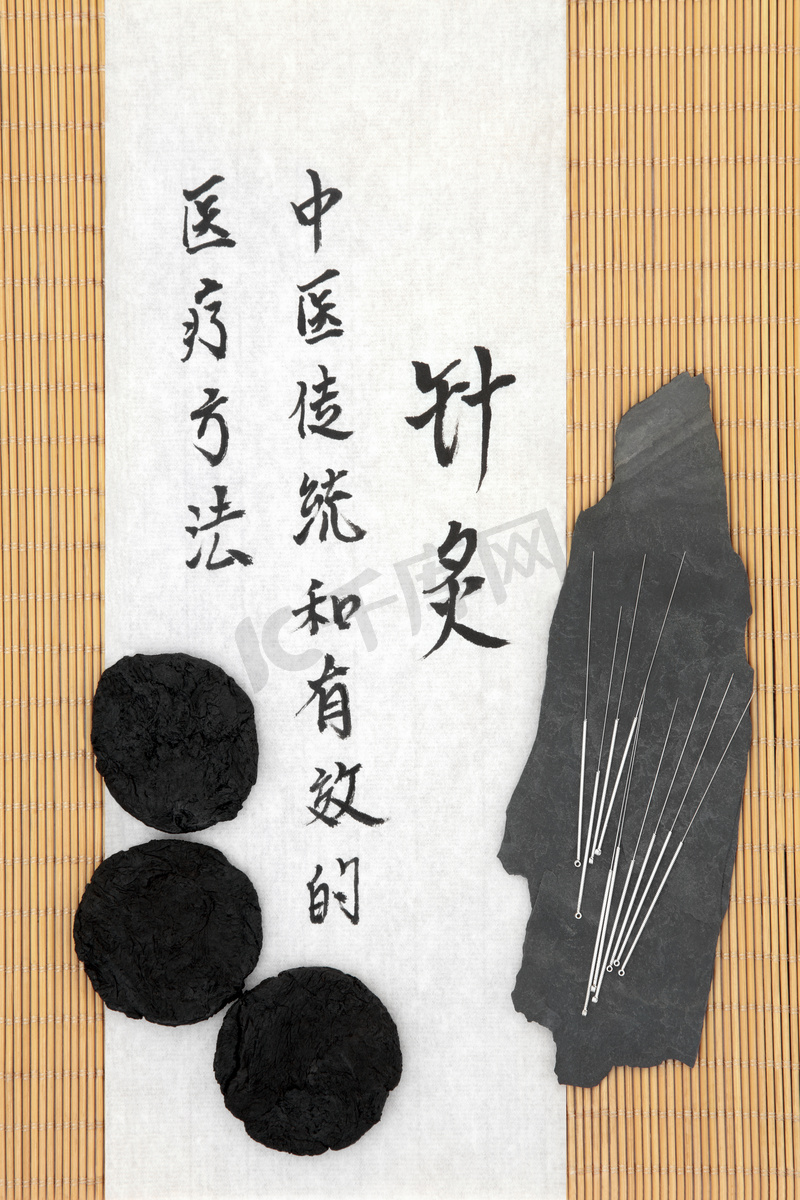 针灸
中医传统和有效的
医疗方法
千库网